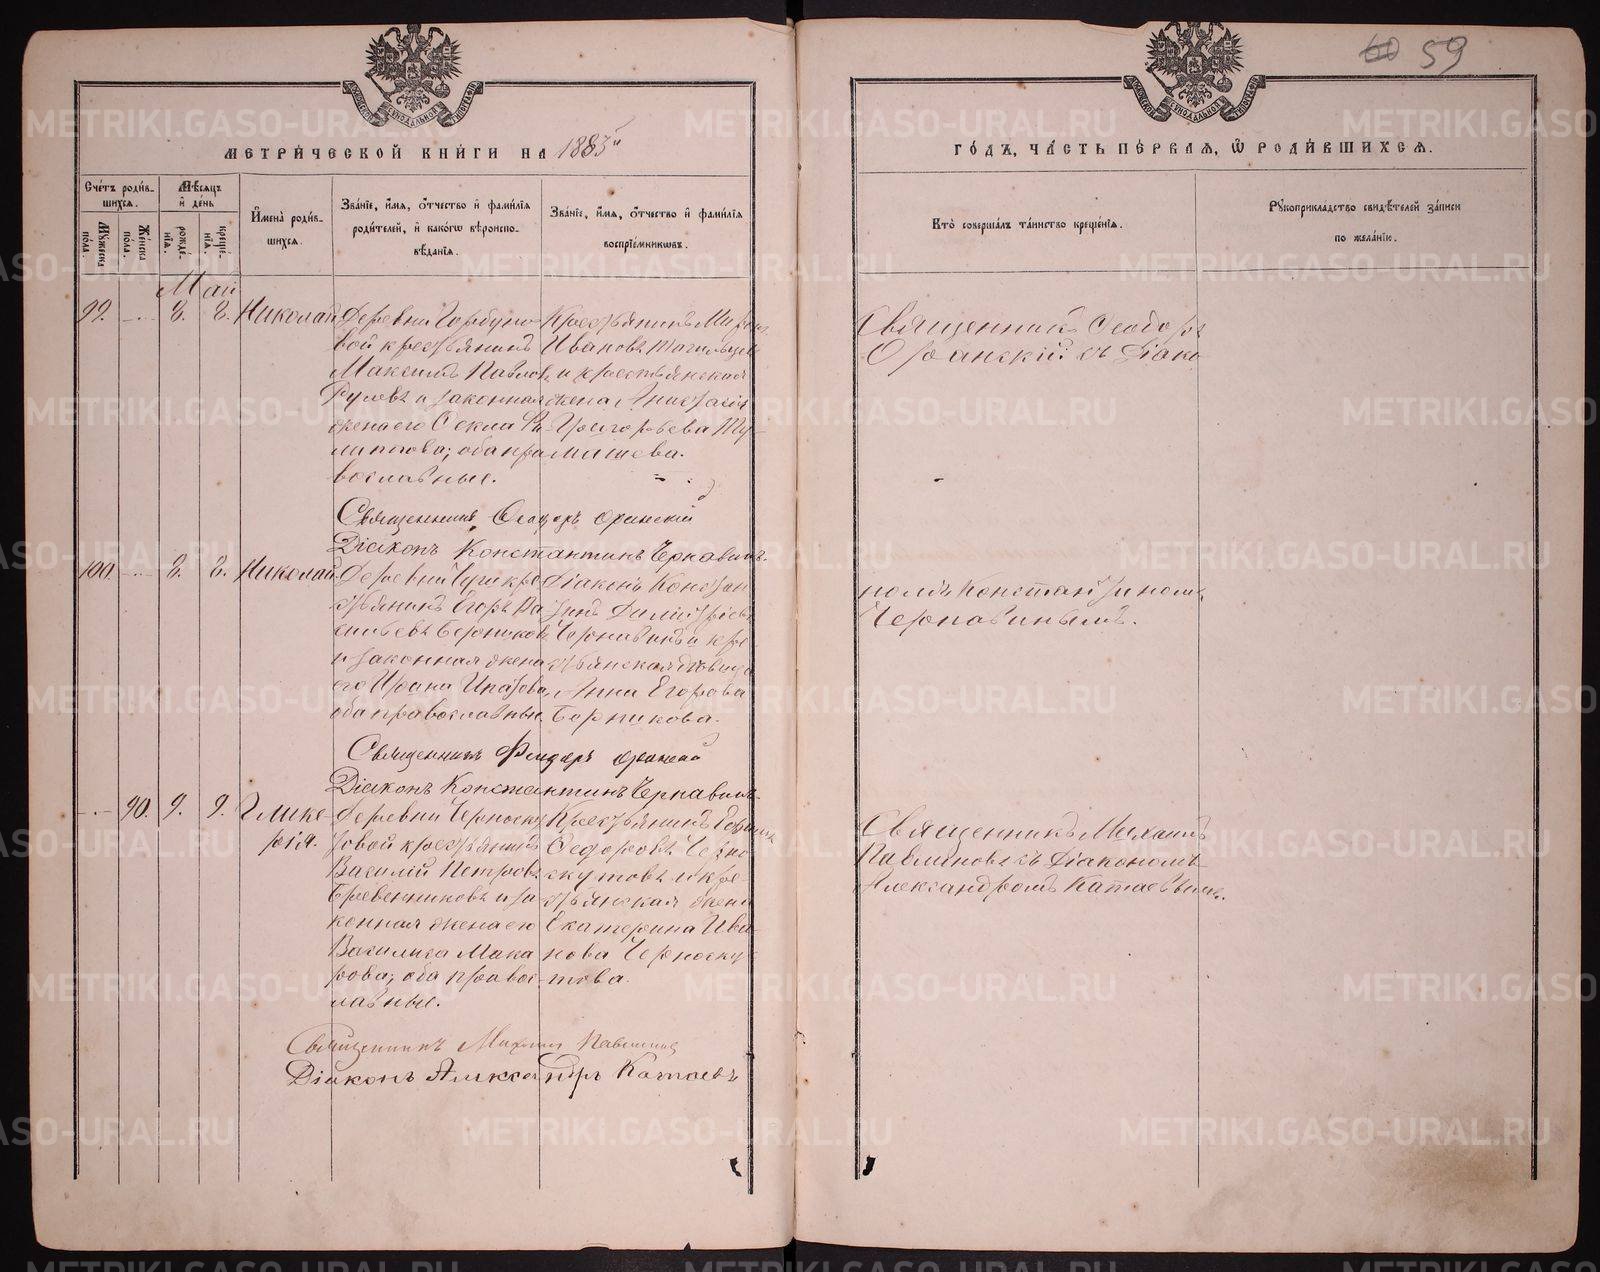 60 59
МЕТРИЧЕСКОЙ КНИГИ НА 1883й
ГОДЪ, ЧАСТЬ ПЕРВАЯ, Ѽ РОДИВШИХСЯ.
Счетъ родив-
шихся.
Мѣсяцъ
и день
Мужеска
пола.
Женска
пола.
рожде-
нія.
креще-
нія.
Имена родив-
шихся.
Званіе, имя, отчество и фамилія
родителей, и какогѡ вѣроиспо-
вѣданія.
Званіе, имя, отчество и фамилія
воспріемникѡвъ.
Кто совершалъ таинство крещенія.
Рукоприкладство свидѣтелей записи
по желанію.
Май
99. 8. 8. Николай
Деревни Горбуно-
вой крестьянинъ
Максимъ Павловъ
Рулевъ и законная
жена его Ѳекла Фи-
липпова; оба пра
вославные.
Крестьянинъ
Ивановъ
и крестьянская
жена Анастасія
Григорьева Ту-
мишева.
Священникъ Ѳеодоръ
Оранскій съ Діако
Священникъ Ѳеодоръ Оранскій
Діаконъ Константинъ Чернавинъ
100. 8. 8. Николай
Деревни кре
стьянинъ Егоръ Ва
сильевъ Берниковъ
и законная жена
его Ирина Ипатова
оба православные
Діаконъ Констан
тинъ Димитріевъ
Чернавинъ и кре
стьянская дѣвица
Анна Егорова
Берникова.
номъ Константиномъ
Чернавинымъ.
Священникъ Ѳеодоръ Оранскій
Діаконъ Константинъ Чернавинъ
90. 9. 9. Глике-
рія.
Деревни Черноску
товой крестьянинъ
Василій Петровъ
Бревенниковъ и за
конная жена его
Василиса Мака
рова; оба правос-
лавные.
Крестьянинъ
Ѳедоровъ Черно
скутовъ и кре-
стьянская жена
Екатерина Ива-
нова Черноску-
това.
Священникъ Михаилъ
Павлиновъ съ Діакономъ
Александромъ Катаевымъ.
Священникъ Михаилъ Павлиновъ
Діаконъ Александръ Катаевъ
METRIKI.GASO-URAL.RU